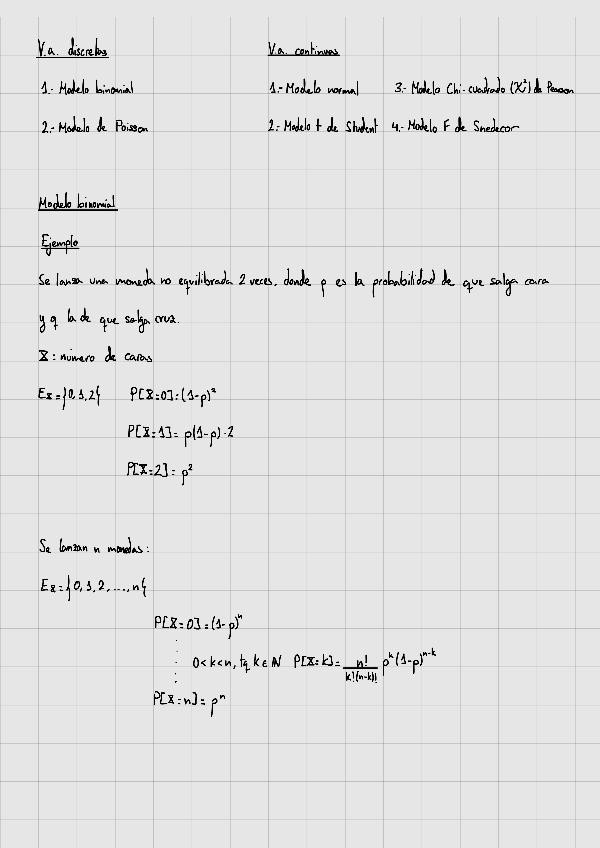 V.a. discretas
V.a. continuas
1.- Modelo binomial
1.- Modelo normal
3.- Modelo Chi-cuadrado (χ²) de Pearson
2.- Modelo de Poisson
2.- Modelo t de Student
4.- Modelo F de Snedecor
Modelo binomial
Ejemplo
Se lanza una moneda no equilibrada 2 veces, donde p es la probabilidad de que salga cara
y q la de que salga cruz.
X: número de caras
Ex = {0,1,2} P[X=0]=(1-p)²
P[X=1]= p(1-p)·2
P[X=2]= p²
Se lanzan n monedas:
Ex = {0,1,2,...,n}
P[X=0]=(1-p)ⁿ
0<k<n, tq k∈ℕ P[X=k]= n!/(k!(n-k)!) p^k (1-p)^(n-k)
P[X=n]= pⁿ